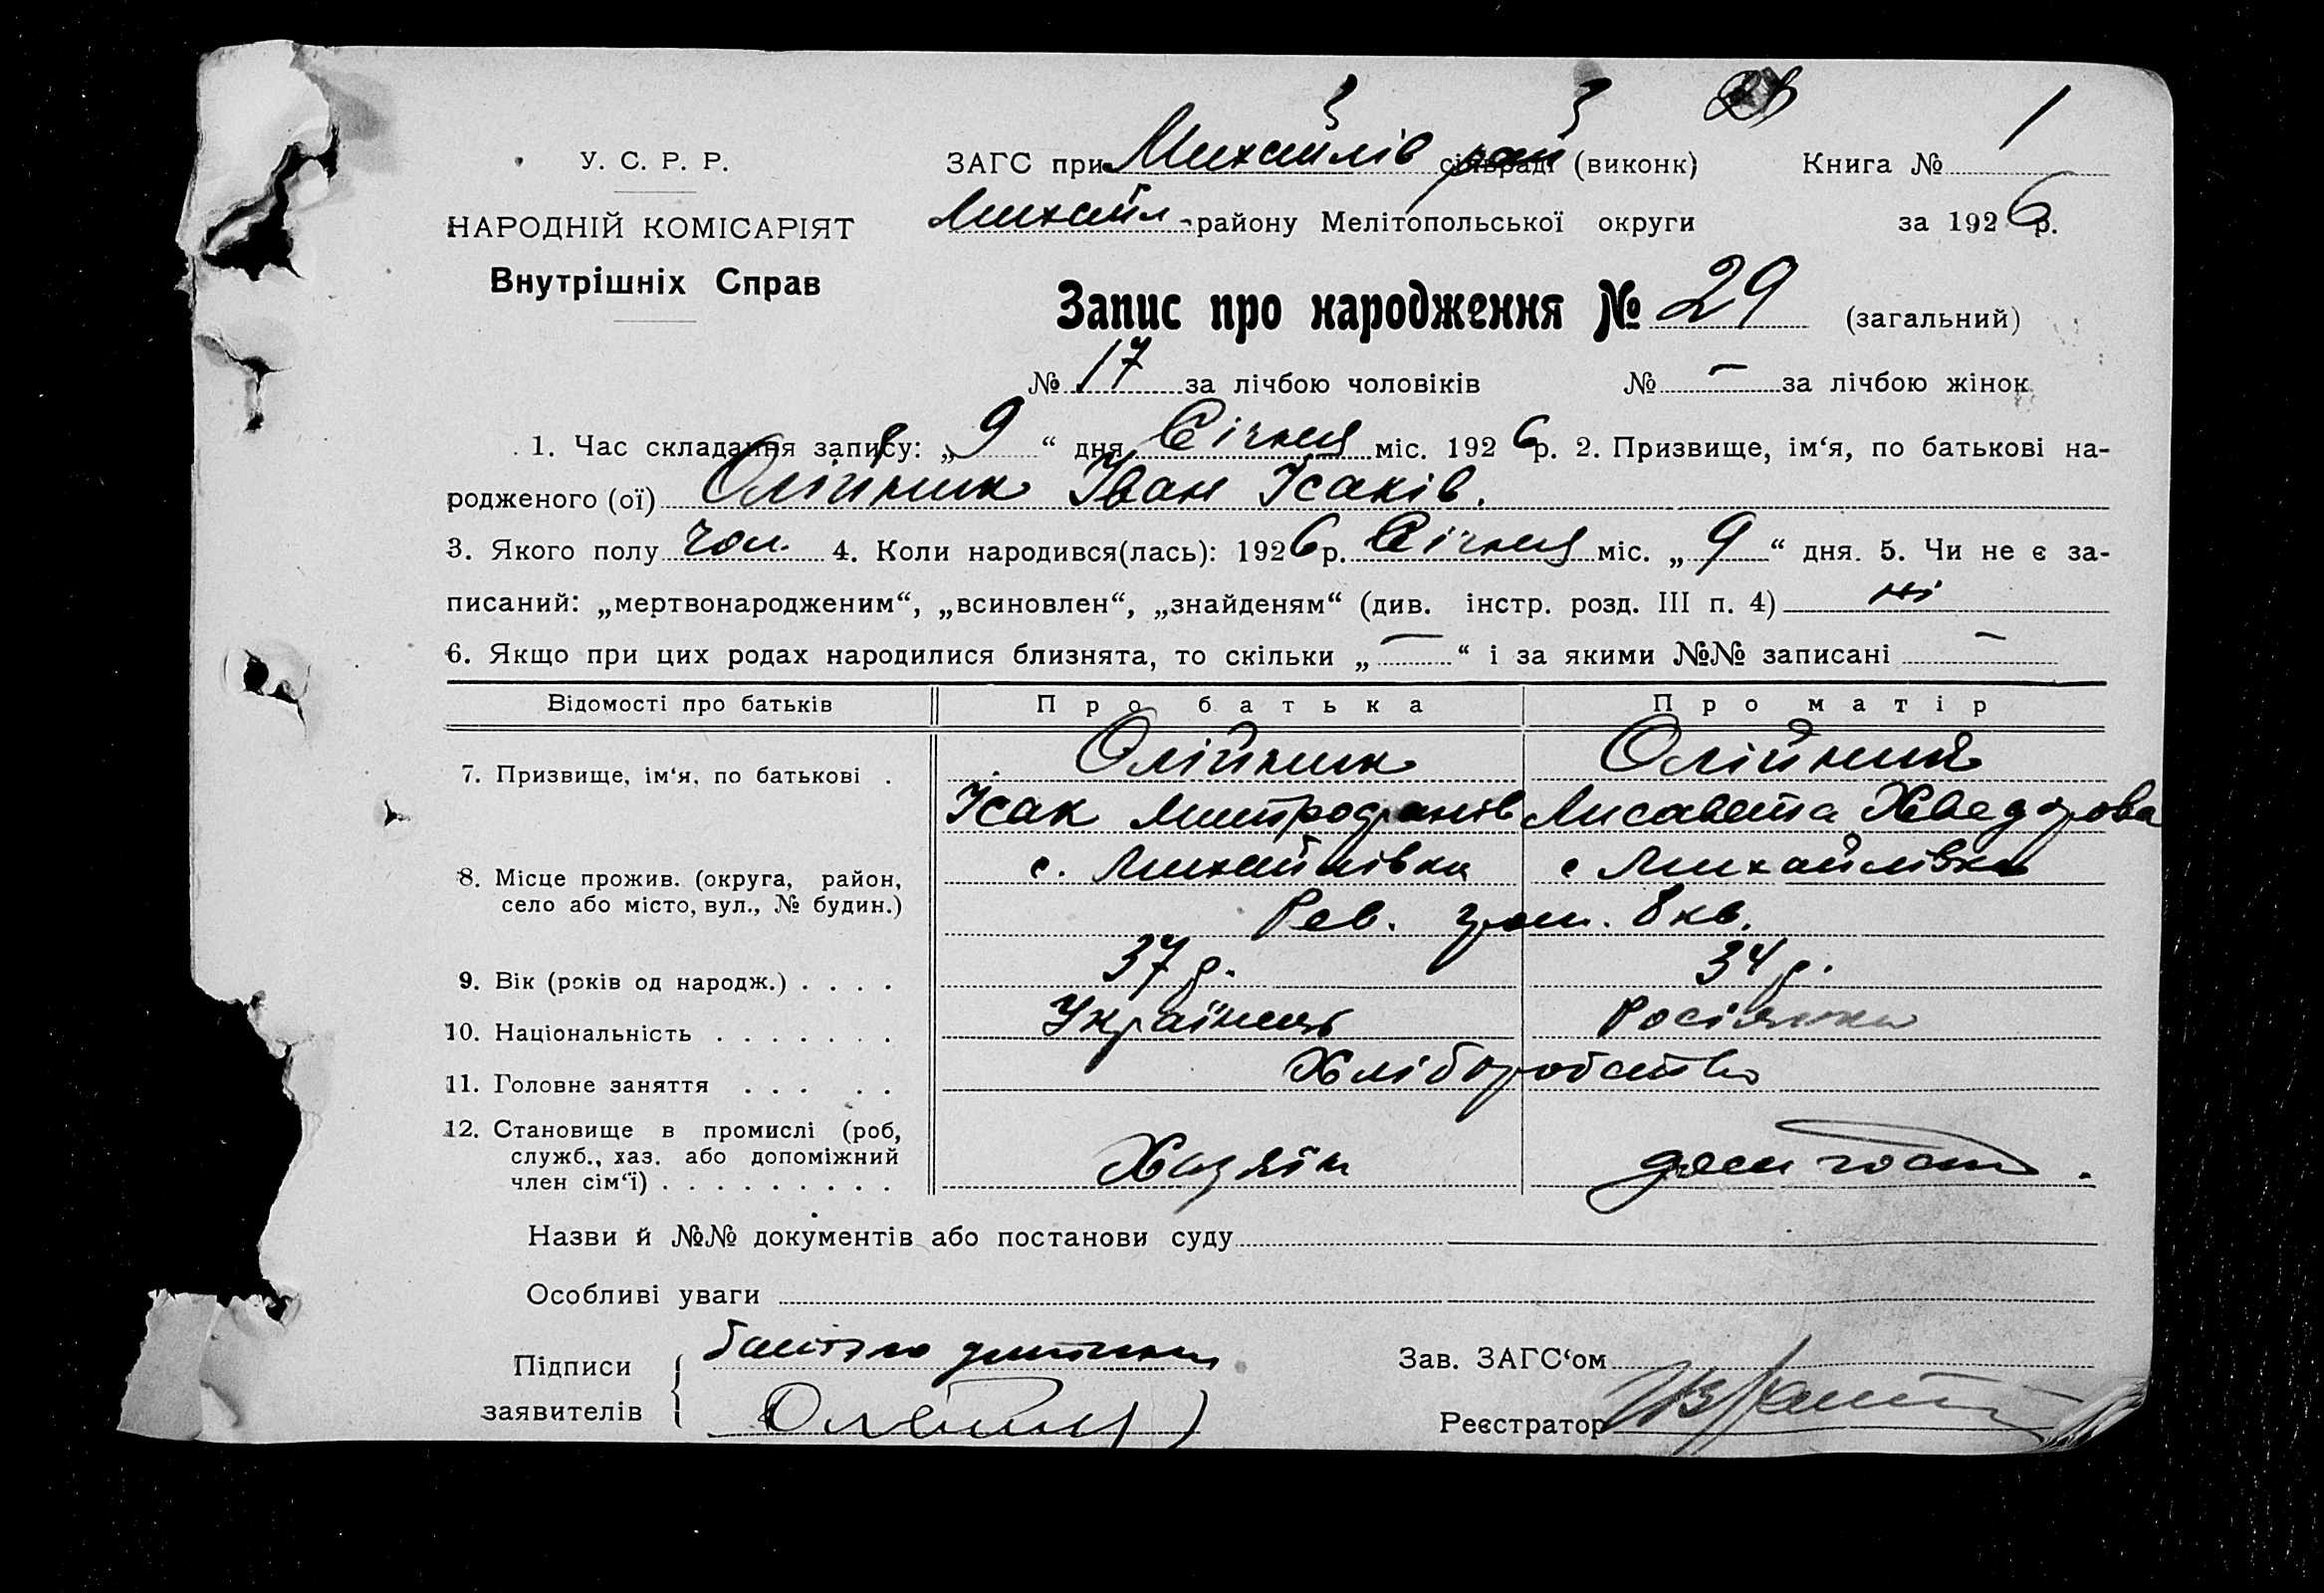 У. С. Р. Р.
НАРОДНІЙ КОМІСАРІЯТ
Внутрішніх Справ
ЗАГС при Михайлів сільраді рай (виконк)
Книга № 1
Михайл району Мелітопольської округи
за 1926 р.
Запис про народження № 29 (загальний)
№ 17 за лічбою чоловіків № — за лічбою жінок
1. Час складання запису: „9“ дня Січня міс. 1926 р. 2. Призвище, ім‘я, по батькові на-
родженого (ої) Олійник Іван Ісаків.
3. Якого полу чол. 4. Коли народився(лась): 1926 р. Січня міс. „9“ дня. 5. Чи не є за-
писаний: „мертвонародженим“, „всиновлен“, „знайденям“ (див. інстр. розд. III п. 4) ні
6. Якщо при цих родах народилися близнята, то скільки „—“ і за якими №№ записані —
Відомості про батьків Про батька Про матір
7. Призвище, ім‘я, по батькові . Олійник Олійник
Ісак Митрофанів Лисавета Хведорова
8. Місце прожив. (округа, район,
село або місто, вул., № будин.)
с. Михайлівка с Михайлівка
Рев. 8 кв.
9. Вік (років од народж.) . . . . 37 р. 34 р.
10. Національність . . . . . . . Українець Росіянка
11. Головне заняття . . . . . Хліборобство
12. Становище в промислі (роб,
служб., хаз. або допоміжний
член сім‘ї) . . . . . . . . . Хазяїн
Назви й №№ документів або постанови суду
Особливі уваги
Підписи
заявителів
батько дитини
Зав. ЗАГС‘ом
Реєстратор